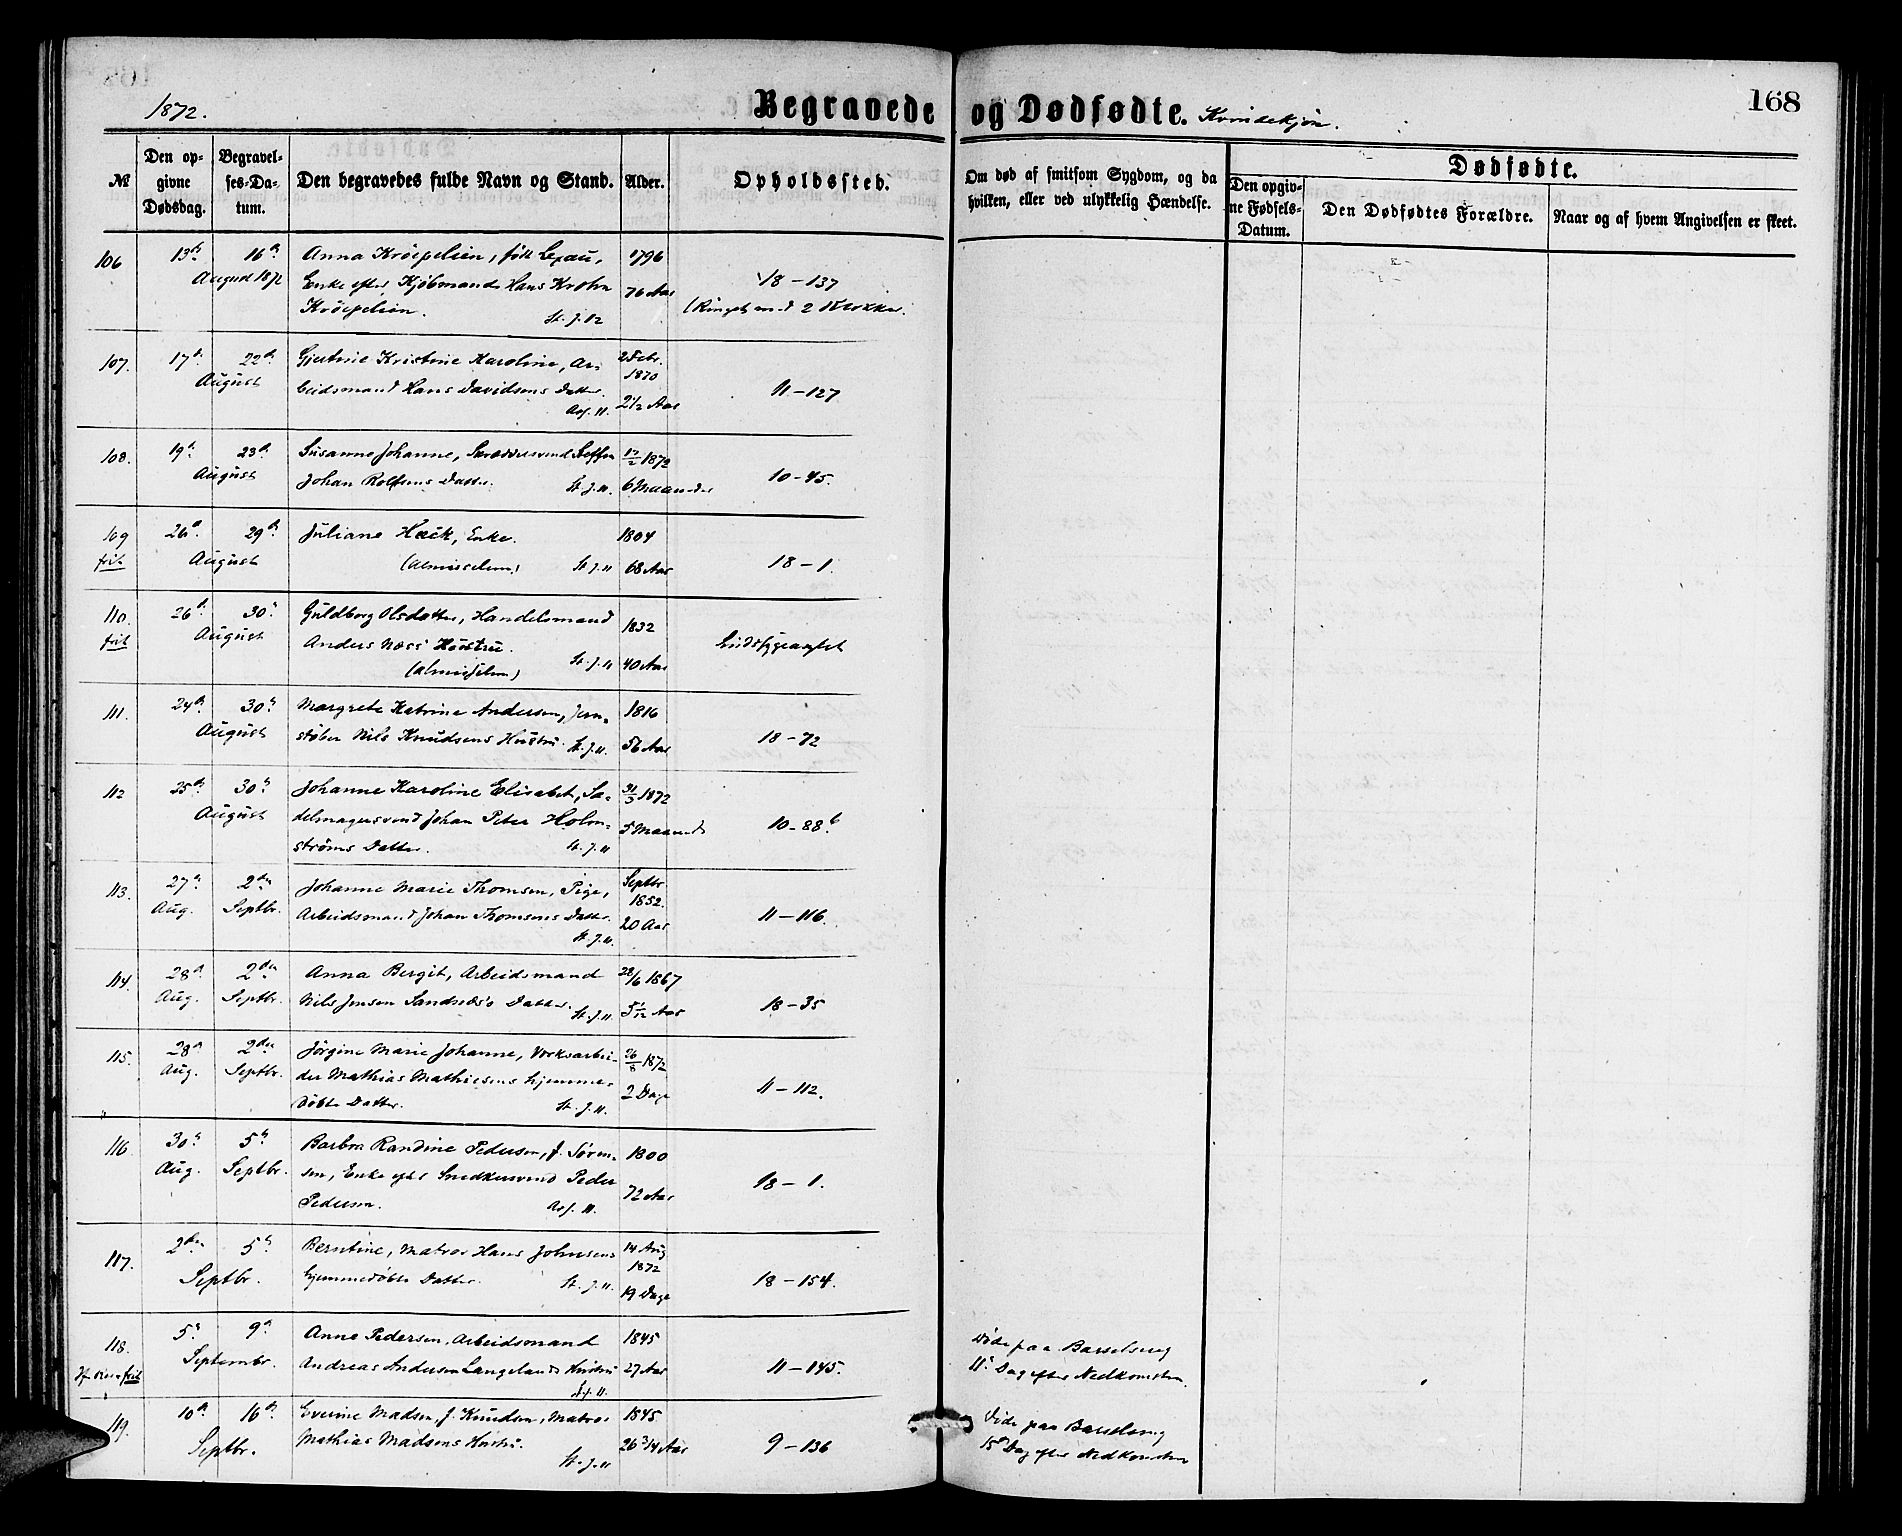 168
1872.
Begravede og Dødfødte. Kvindekjøn.
№
Den opgivne Dødsdag.
Begravelses-Datum.
Den begravedes fulde Navn og Stand.
Alder.
Opholdssted.
Om død af smitsom Sygdom, og da hvilken, eller ved ulykkelig Hændelse.
Dødfødte.
Den opgivne Fødsels-Datum.
Den Dødfødtes Forældre.
Naar og af hvem Angivelsen er skeet.
106 13de 16de Anna Kröepelien, født 1796
August 1872 Enke efter Kjøbmand Hans Krohn 76 Aar 18-137
Kröepelien. St. J. 12 (Ringet med 2 Klokker.
107. 17de 22de Gjertine Kristine Karoline, Ar- 2 Febr. 1870
August beidsmand Hans Davidsens Datter. 2 1/2 Aar 11-127
Asf. 11.
108. 19de 23de Susanne Johanne, Skræddersvend Steffen 17/2 1872
August Johan Rolfsens Datter. St. J. 11. 6 Maaneder 10-45.
109 26de 29de Juliane Hæck, Enke. 1804
frit August (Almisselem) St. J. 11 68 Aar 18-1.
110. 26de 30de Guldborg Olsdatter, Handelsmand 1832
frit August Anders Næss' Hustru. St. J. 11 40 Aar
(Almisselem)
111. 24de 30de Margrete Katrine Andersen, Jern- 1816
August støber Nils Knudsens Hustru. St. J. 11. 56 Aar 18-72
112 25de 30de Johanne Karoline Elisabet, Sa- 31/3 1872
August delmagersvend Johan Peter Holm- 5 Maaneder 10-88b
strøms Datter. St. J. 11
113. 27de 2den Johanne Marie Thomsen, Pige, Septbr 1852.
Aug. Septbr. Arbeidsmand Johan Thomsens Datter 20 Aar 11-116.
St. J. 11.
114. 28de 2den Anna Bergit, Arbeidsmand 28/6 1867
Aug. Septbr. Nils Jensen Datter. St. J. 11. 5 1/12 Aar 18-35
115. 28de 2den Jørgine Marie Johanne, Værksarbei- 26/8 1872
Aug. Septbr. der Mathias Mathiesens hjemme- 2 Dage 11-112.
døbte Datter. St. J. 11.
116. 30de 5te Barbra Randine Pedersen, f. Søren- 1800
Aug. Septbr. sen, Enke efter Snedkersvend Peder 72 Aar 18-1.
Pedersen. Asf. 11.
117. 2den 5te Berntine, Matros Hans Johnsens 14 Aug 1872
Septbr. hjemmedøbte Datter. St. J. 11. 19 Dage 18-154.
118. 5te 9de Anne Pedersen, Arbeidsmand 1845 Døde paa Barselseng
frit Septembr. Andreas Andersen Langelands Hustru 27 Aar 11-145. 11te Dag efter Nedkomsten.
119. 10de 16de Everine Madsen, f. Knudsen, Matros 1845 Døde paa Barselseng
Septbr. Mathias Madsens Hustru. St. J. 11 26 3/4 Aar 9-136 15de Dag efter Nedkomsten